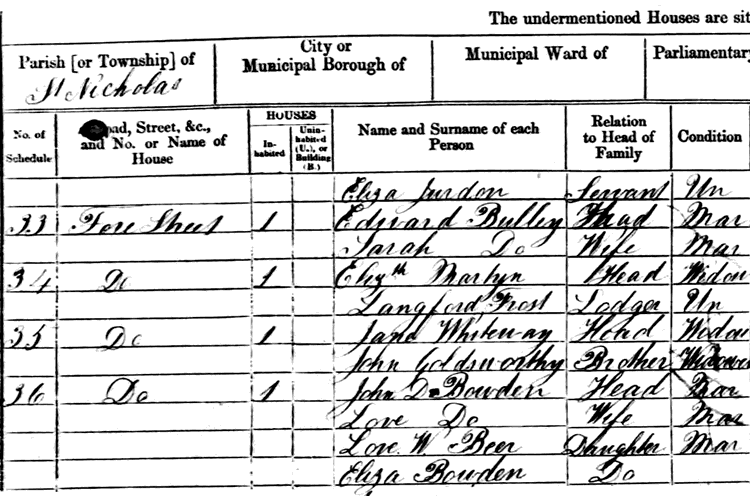 The undermentioned Houses are sit
Parish [or Township] of
St Nicholas
City or
Municipal Borough of
Municipal Ward of
Parliamentary
No. of
Schedule
Road, Street, &c.,
and No. or Name of
House
HOUSES
In-
habited
Unin-
habited
(U.), or
Building
(B.)
Name and Surname of each
Person
Relation
to Head of
Family
Condition
Eliza Jurdon Servant Un
33 Fore Street 1 Edward Bulley Head Mar
Sarah Do Wife Mar
34 Do 1 Elizth Martyn Head Widow
Langford Frost Lodger Un
35 Do 1 Jane Whiteway Head Widow
John Goldsworthy Brother Widower
36 Do 1 John D Bowden Head Mar
Love Do Wife Mar
Love W Beer Daughter Mar
Eliza Bowden Do